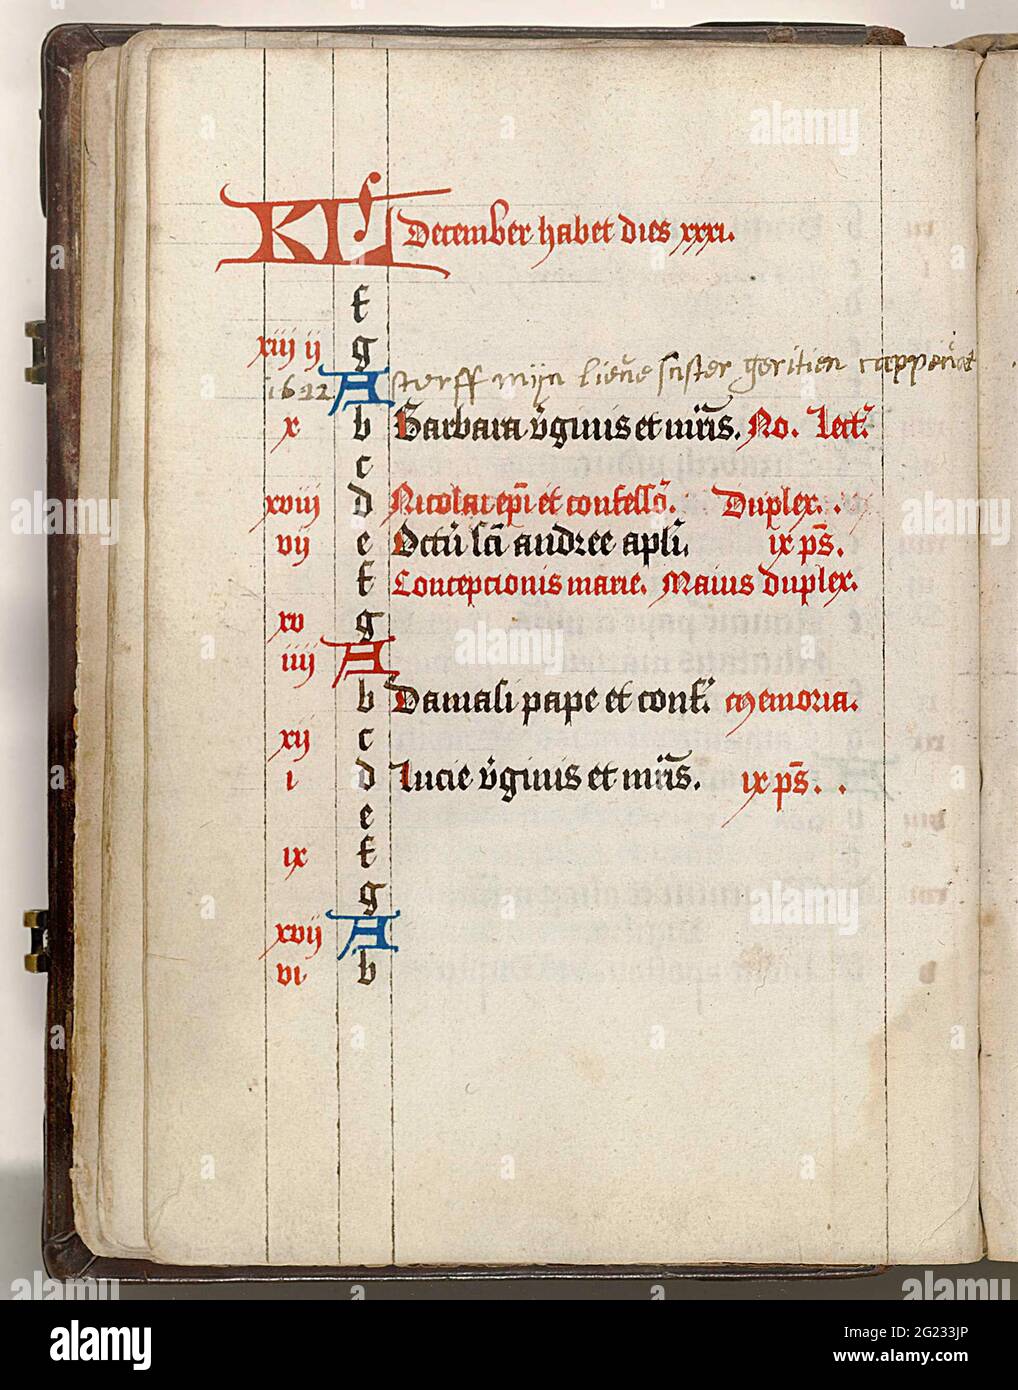 KL December habet dies xxxi.
f
xiij ij g
1622 A sterff mijn lieve suster geritien
x b Barbara v̄ginis et mr̄is. No. Lect.
c
xviij d Nicolai ep̄i et confesso. Duplex.
vij e Octū scī andree apli. ix ps̄.
f Concepcionis marie. Maius duplex.
xv g
iiij A
b Damasi pape et conf. Memoria.
xij c
i d Lucie v̄ginis et mr̄is. ix ps̄.
e
ix f
g
xvij A
vi b
alamy
Image ID: 2G233JP
www.alamy.com